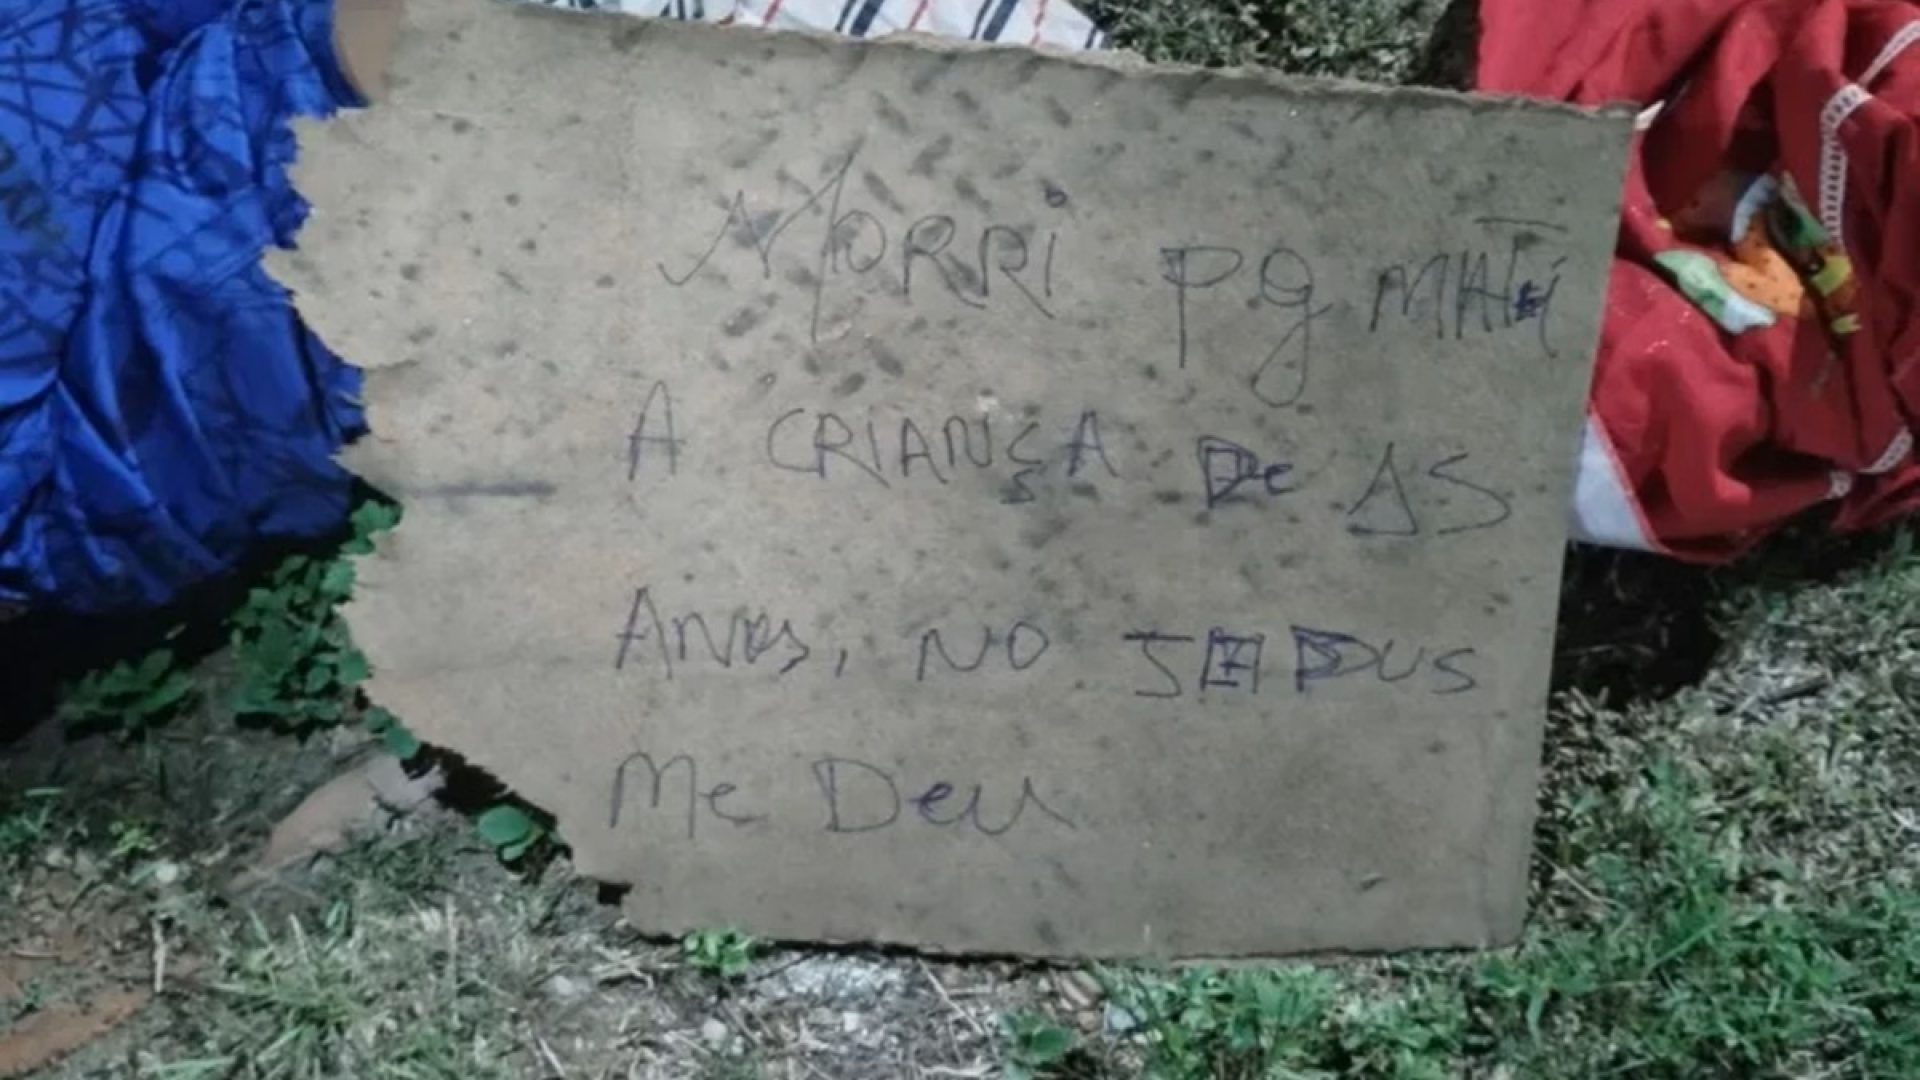 MORRI PQ MATEI
A CRIANÇA De 15
ANOS, NO
Me Deu